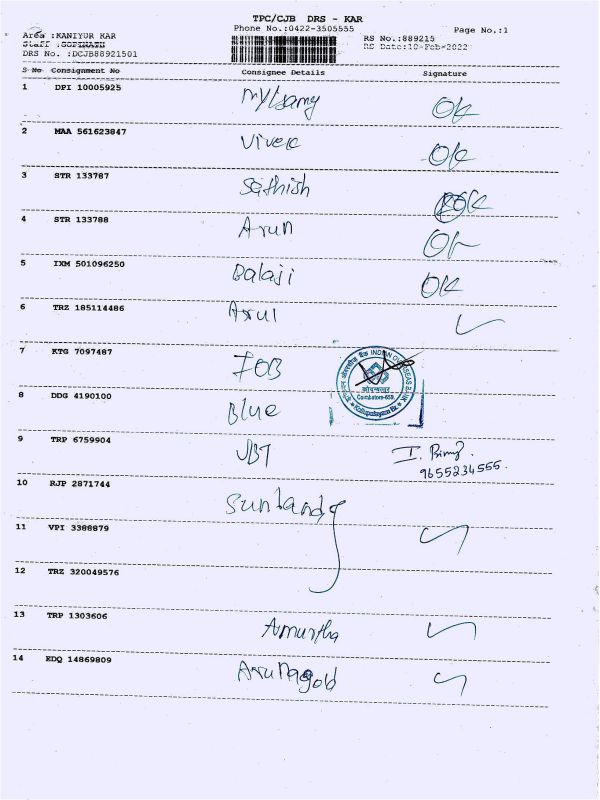 TPC/CJB DRS - KAR
Phone No.:0422-3505555
Page No.:1
Area :KANIYUR KAR
RS No.:889215
Staff :GOPINATH
RS Date:10-Feb-2022
DRS No. :DCJB88921501
S No Consignment No Consignee Details Signature
1 DPI 10005925 Mylsamy OK
2 MAA 561623847 Vivek OK
3 STR 133787 Sathish OK
4 STR 133788 Arun OK
5 IXM 501096250 Balaji OK
6 TRZ 185114486 Arul
7 KTG 7097487 IOB
INDIAN OVERSEAS BANK
Coimbatore-659
8 DDG 4190100 Blue
9 TRP 6759904 UBT I.
9655234555.
10 RJP 2871744
11 VPI 3388879
12 TRZ 320049576
13 TRP 1303606 Amurtha
14 EDQ 14869809 Arunagob